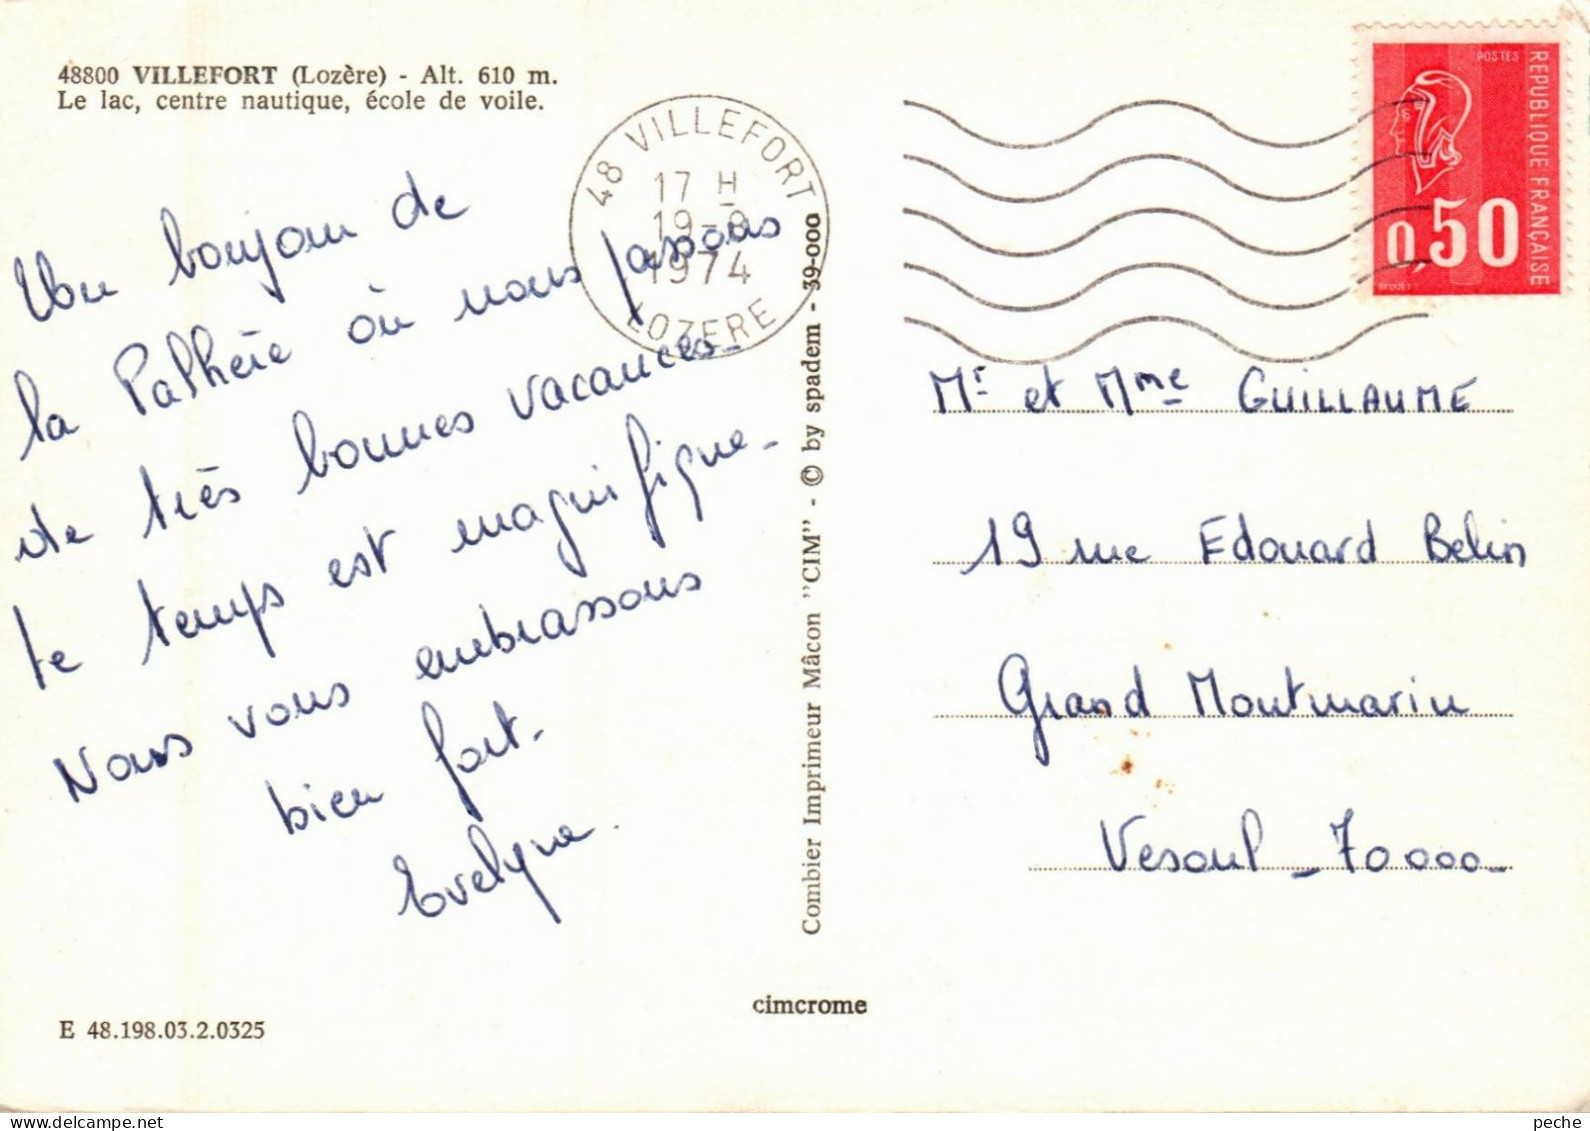 48800 VILLEFORT (Lozère) - Alt. 610 m.
Le lac, centre nautique, école de voile.
48 VILLEFORT
17 H
19-8
1974
LOZERE
POSTES
REPUBLIQUE FRANÇAISE
0,50
Un bonjour de
la Palhère où nous passons
de très bonnes vacances_
le temps est magnifique_
Nous vous embrassons
bien fort.
Evelyne.
Mr et Mme GUILLAUME
19 rue Edouard Belin
Grand Montmarin
Vesoul _ 70000_
Combier Imprimeur Mâcon "CIM" - © by spadem - 39-000
cimcrome
E 48.198.03.2.0325
peche